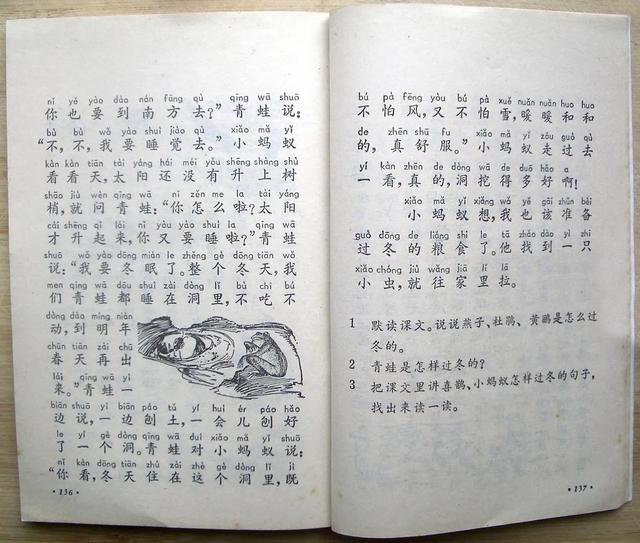 nǐ yě yào dào nán fāng qù qīng wā shuō
你也要到南方去?”青蛙说:
bù bù wǒ yào shuì jiào qù xiǎo mǎ yǐ
“不,不,我要睡觉去。”小蚂蚁
kàn kàn tiān tài yáng hái méi yǒu shēng shàng shù
看看天,太阳还没有升上树
shāo jiù wèn qīng wā nǐ zěn me la tài yáng
梢,就问青蛙:“你怎么啦?太阳
cái shēng qǐ lái nǐ yòu yào shuì la qīng wā
才升起来,你又要睡啦?”青蛙
shuō wǒ yào dōng mián le zhěng gè dōng tiān wǒ
说:“我要冬眠了。整个冬天,我
men qīng wā dōu shuì zài dòng lǐ bù chī bú
们青蛙都睡在洞里,不吃不
dòng dào míng nián
动,到明年
chūn tiān zài chū
春天再出
lái qīng wā yì
来。”青蛙一
biān shuō yì biān páo tǔ yí huì ér páo hǎo
边说,一边刨土,一会儿刨好
le yí gè dòng qīng wā duì xiǎo mǎ yǐ shuō
了一个洞。青蛙对小蚂蚁说:
nǐ kàn dōng tiān zhù zài zhè gè dòng lǐ jì
“你看,冬天住在这个洞里,既
·136·
bú pà fēng yòu bú pà xuě nuǎn nuǎn huo huo
不怕风,又不怕雪,暖暖和和
de zhēn shū fu xiǎo mǎ yǐ zǒu guò qù
的,真舒服。”小蚂蚁走过去
yí kàn zhēn de dòng wā de duō hǎo a
一看,真的,洞挖得多好啊!
xiǎo mǎ yǐ xiǎng wǒ yě gāi zhǔn bèi
小蚂蚁想,我也该准备
guò dōng de liáng shi le tā zhǎo dào yì zhī
过冬的粮食了。他找到一只
xiǎo chóng jiù wǎng jiā lǐ lā
小虫,就往家里拉。
1 默读课文。说说燕子、杜鹃、黄鹂是怎么过
冬的。
2 青蛙是怎样过冬的?
3 把课文里讲喜鹊、小蚂蚁怎样过冬的句子,
找出来读一读。
·137·